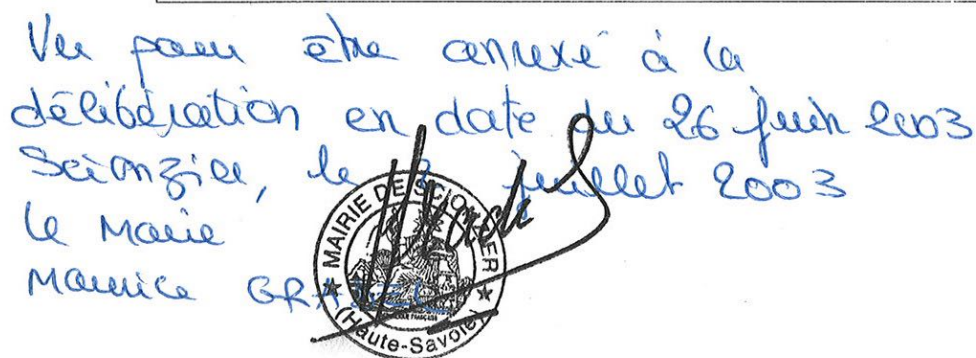 Vu pour être annexé à la
délibération en date du 26 juin 2003
Scionzier, le juillet 2003
le Maire
Maurice
MAIRIE DE SCIONZIER
(Haute-Savoie)